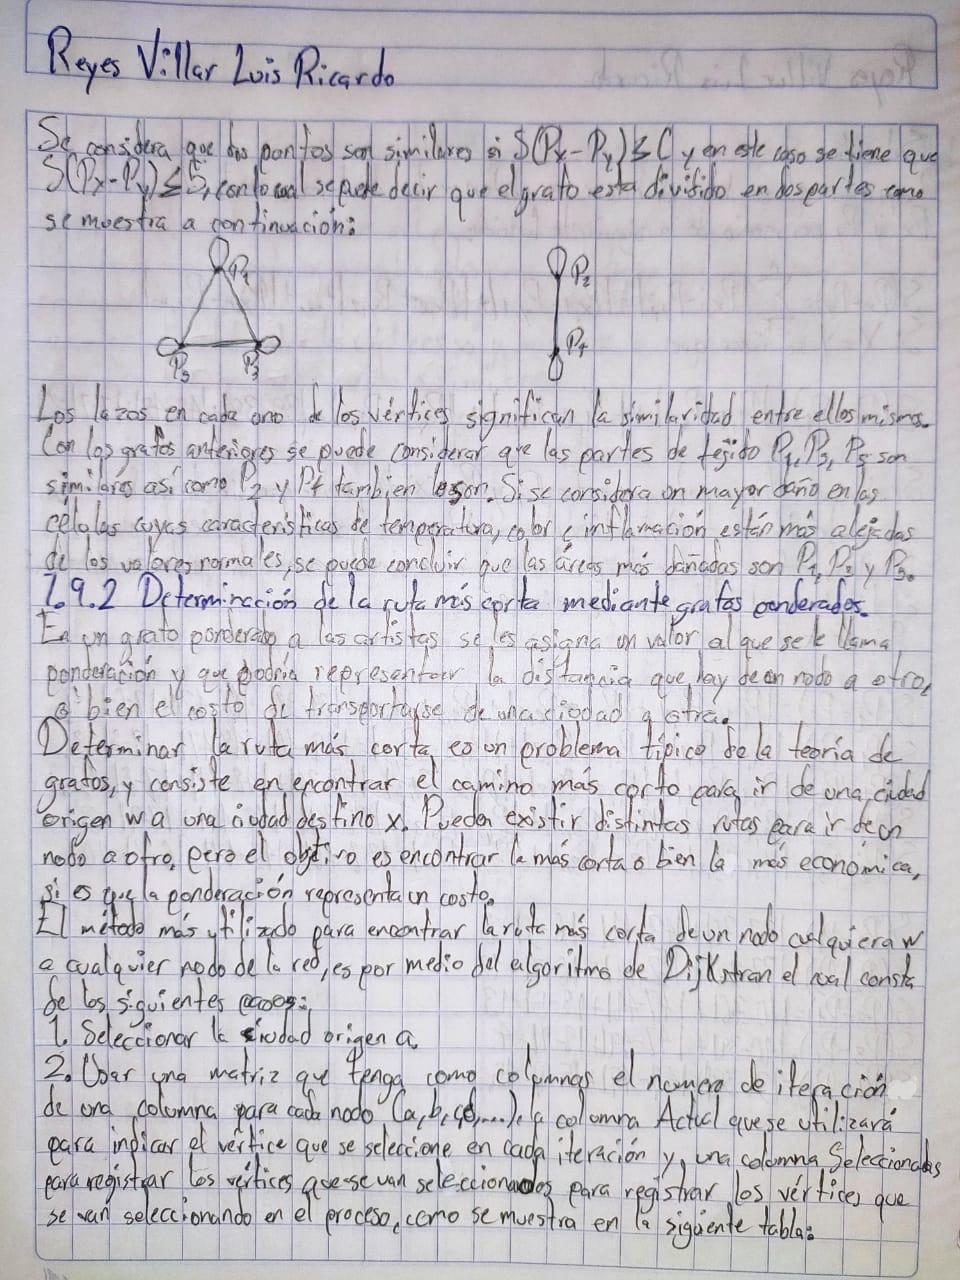 Reyes Villar Luis Ricardo
Se considera que dos puntos son similares si S(Px-Py)≤C y en este caso se tiene que
S(Px-Py)≤5, con lo cual se puede decir que el grafo esta dividido en dos partes como
se muestra a continuación:
P1 P2
P4
P5 P3
Los lazos en cada uno de los vértices significan la similaridad entre ellos mismos.
Con los grafos anteriores se puede considerar que las partes de tejido P1, P3, P5 son
similares asi como P2 y P4 tambien lo son. Si se considera un mayor daño en las
celulas cuyas caracteristicas de temperatura, color e inflamación están más alejadas
de los valores normales, se puede concluir que las áreas más dañadas son P1, P3 y P5.
7.9.2 Determinación de la ruta más corta mediante grafos ponderados.
En un grafo ponderado a las aristas se les asigna un valor al que se le llama
ponderación y que podria representar la distancia que hay de un nodo a otro,
o bien el costo de transportarse de una ciudad a otra.
Determinar la ruta más corta es un problema tipico de la teoría de
grafos, y consiste en encontrar el camino más corto para ir de una ciudad
origen w a una ciudad destino x. Pueden existir distintas rutas para ir de un
nodo a otro, pero el objtivo es encontrar la más corta o bien la más económica,
si es que la ponderación representa un costo.
El método más utilizado para encontrar la ruta más corta de un nodo cualquiera w
a cualquier nodo de la red, es por medio del algoritmo de Dijkstran el cual consta
de los siguientes pasos:
1. Seleccionar la ciudad origen a.
2. Usar una matriz que tenga como columnas el número de iteración
de una columna para cada nodo (a,b,c,d,...), la columna Actual que se utilizará
para indicar el vértice que se seleccione en cada iteración y, una columna Seleccionados
para registrar los vértices que se van seleccionados para registrar los vértices que
se van seleccionando en el proceso, como se muestra en la siguiente tabla: